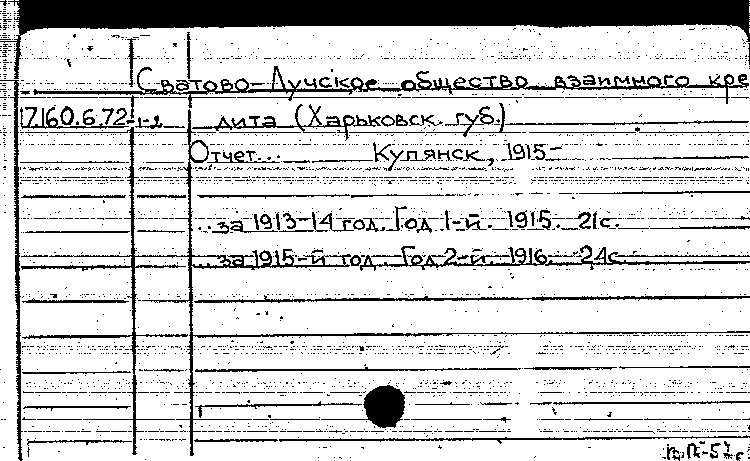 Сватово-Лучское общество взаимного кре
17.160.6.72 1-2 дита (Харьковск. губ.)
Отчет... Купянск, 1915-
...за 1913-14 год. Год 1-й. 1915. 21с.
...за 1915-й год. Год 2-й. 1916. 24с.